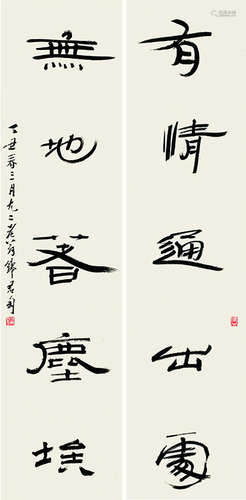 有情通出處
無地著塵埃
丁丑春三月九二